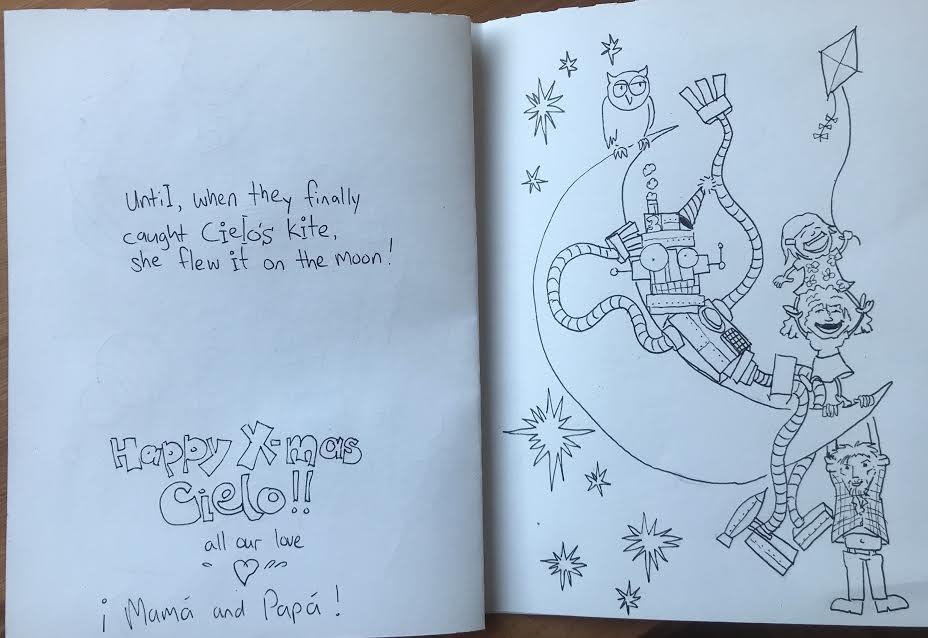 Until, when they finally
caught Cielo's kite,
she flew it on the moon!
Happy X-mas
Cielo!!
all our love
¡Mamá and Papá!